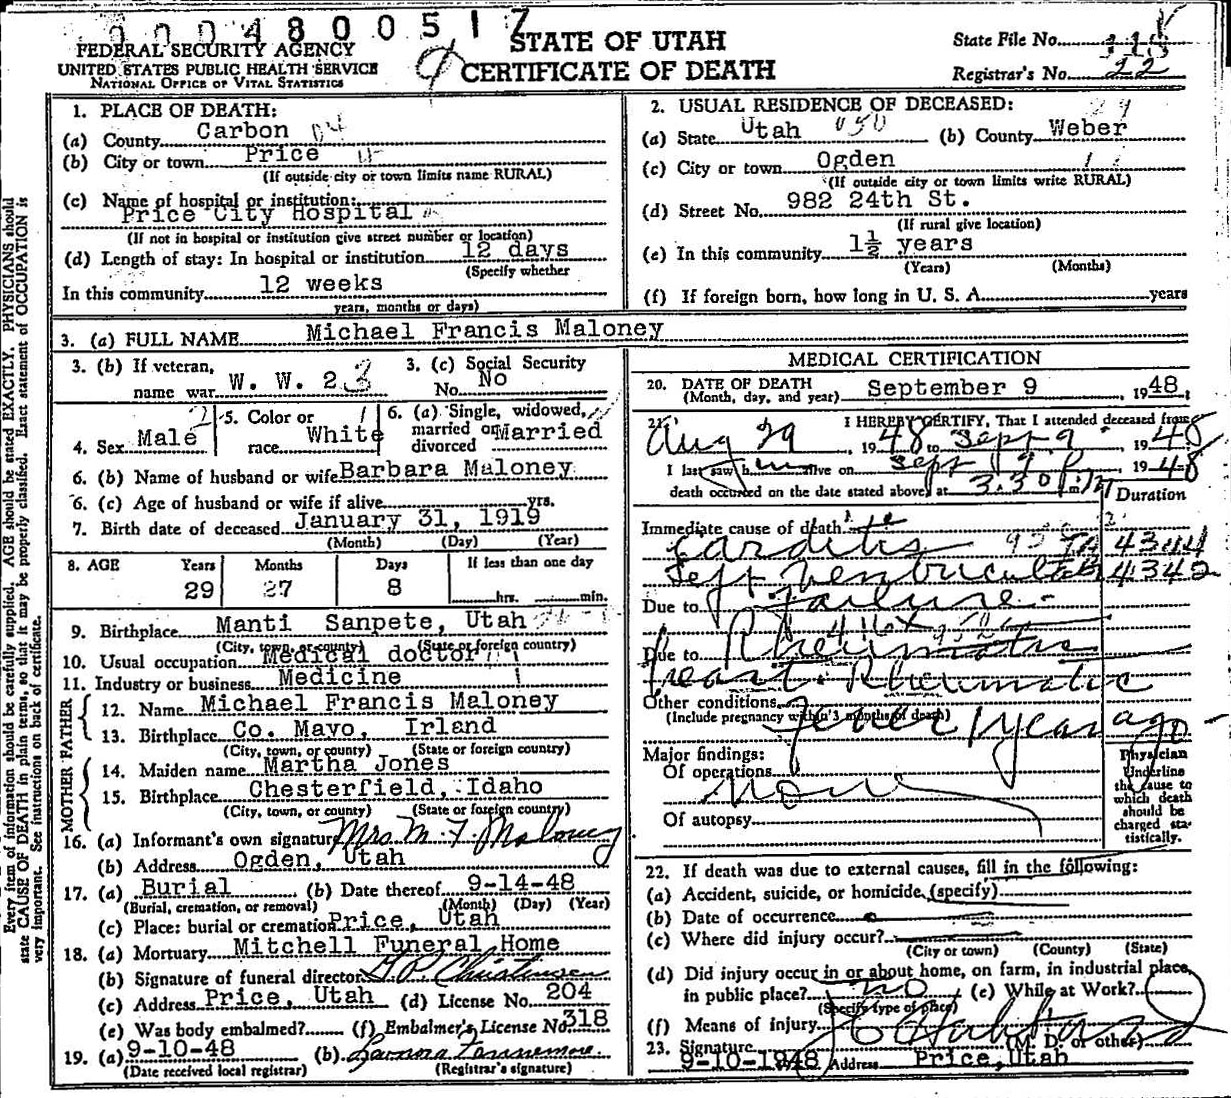 0004800517
FEDERAL SECURITY AGENCY
UNITED STATES PUBLIC HEALTH SERVICE
NATIONAL OFFICE OF VITAL STATISTICS
STATE OF UTAH
CERTIFICATE OF DEATH
State File No. 118
Registrar's No. 22
1. PLACE OF DEATH:
(a) County Carbon 04
(b) City or town Price
(If outside city or town limits name RURAL)
(c) Name of hospital or institution:
Price City Hospital
(If not in hospital or institution give street number or location)
(d) Length of stay: In hospital or institution 12 days
(Specify whether
In this community 12 weeks
years, months or days)
2. USUAL RESIDENCE OF DECEASED:
(a) State Utah (b) County Weber
(c) City or town Ogden
(If outside city or town limits write RURAL)
(d) Street No. 982 24th St.
(If rural give location)
(e) In this community 1½ years
(Years) (Months)
(f) If foreign born, how long in U. S. A. years
3. (a) FULL NAME Michael Francis Maloney
3. (b) If veteran, name war W. W. 2
3. (c) Social Security No. No
4. Sex Male
5. Color or race White
6. (a) Single, widowed, married or divorced Married
6. (b) Name of husband or wife Barbara Maloney
6. (c) Age of husband or wife if alive yrs.
7. Birth date of deceased January 31, 1919
(Month) (Day) (Year)
8. AGE Years Months Days If less than one day
29 27 8 hrs. min.
9. Birthplace Manti Sanpete, Utah
(City, town, or county) (State or foreign country)
10. Usual occupation Medical doctor
11. Industry or business Medicine
FATHER
12. Name Michael Francis Maloney
13. Birthplace Co. Mayo, Irland
(City, town, or county) (State or foreign country)
MOTHER
14. Maiden name Martha Jones
15. Birthplace Chesterfield, Idaho
(City, town, or county) (State or foreign country)
16. (a) Informant's own signature Mrs M. F. Maloney
(b) Address Ogden, Utah
17. (a) Burial (b) Date thereof 9-14-48
(Burial, cremation, or removal) (Month) (Day) (Year)
(c) Place: burial or cremation Price, Utah
18. (a) Mortuary Mitchell Funeral Home
(b) Signature of funeral director Christensen
(c) Address Price, Utah (d) License No. 204
(e) Was body embalmed? (f) Embalmer's License No. 318
19. (a) 9-10-48 (b)
(Date received local registrar) (Registrar's signature)
MEDICAL CERTIFICATION
20. DATE OF DEATH
(Month, day, and year) September 9 1948
21. I HEREBY CERTIFY, That I attended deceased from
Aug 29, 1948 to Sept 9, 1948
I last saw him alive on Sept 9, 1948
death occurred on the date stated above, at 3:30 P m.
Duration
Immediate cause of death
Carditis 4344
Left Ventricular 4342
Due to failure
416X
Due to Rheumatic
heart. Rheumatic
Other conditions
(Include pregnancy within 3 months of death)
fever 1 year ago
Major findings:
Of operations
None
Of autopsy
Physician
Underline
the cause to
which death
should be
charged sta-
tistically.
22. If death was due to external causes, fill in the following:
(a) Accident, suicide, or homicide (specify)
(b) Date of occurrence
(c) Where did injury occur?
(City or town) (County) (State)
(d) Did injury occur in or about home, on farm, in industrial place,
in public place? no (e) While at Work?
(Specify type of place)
(f) Means of injury
23. Signature (M. D. or other)
9-10-1948 Address Price, Utah
Every item of information should be carefully supplied. AGE should be stated EXACTLY. PHYSICIANS should
state CAUSE OF DEATH in plain terms, so that it may be properly classified. Exact statement of OCCUPATION is
very important. See instructions on back of certificate.